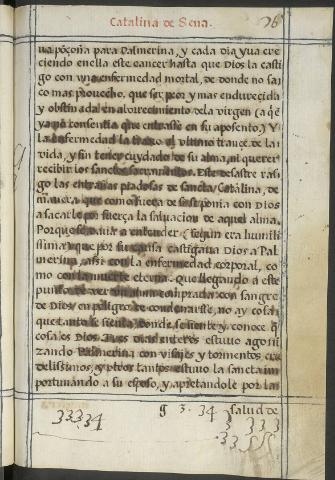 Catalina de Sena.
76
ua põçoña para Palmerina, y cada dia yua cre
ciendo en ella este cancer hasta que Dios la casti
go con una enfermedad mortal, de donde no sa
co mas prouecho, que ser peor y mas endurecida
y obstinada en aborrecimiento dela virgen (a q̃
ya no consentia que entrasse en su aposento.) Y
la enfermedad la traxo al ultimo trançe de la
vida, y sin tener cuydado de su alma, ni querer
recibir los sanctos sacramentos. Este desastre ras
go las entrañas piadosas de sancta Catalina, de
manera que como fuera de si se ponia con Dios
a sacarle por fuerça la saluacion de aquel alma.
Porque se daua a entender (segun era humili
ssima) que por su causa castigaua Dios a Pal
merina, assi con la enfermedad corporal, co
mo con la muerte eterna. Que llegando a este
punto de ver un alma comprada con sangre
de Dios en peligro de condenarsse, no ay cosa
que tanto se sienta, donde se siente y conoce q̃
cosa es Dios. Tres dias enteros estuvo agoni
zando Palmerina con visajes y tormentos cru
delissimos, y otros tantos estuvo la sancta im
portunando a su esposo, y apretandole por la
salud de
33334
9 3. 34
3 333